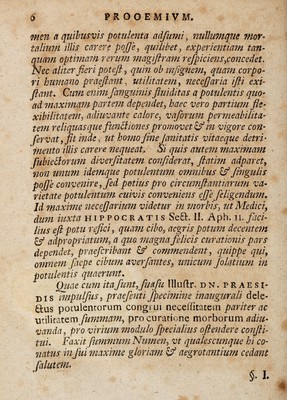 6 PROOEMIVM.
men a quibusvis potulenta adsumi, nullumque mor-
talium illis carere posse, quilibet, experientiam tan-
quam optimam rerum magistram respiciens, concedet.
Nec aliter fieri potest, quin ob insignem, quam corpo-
ri humano praestant, utilitatem, necessaria isti exi-
stant. Cum enim sanguinis fluiditas a potulentis quo-
ad maximam partem dependet, haec vero partium fle-
xibilitatem, adiuvante calore, vasorum permeabilita-
tem reliquasque functiones promovet & in vigore con-
servat, fit inde, ut homo sine sanitatis vitaeque detri-
mento illis carere nequeat. Si quis autem maximam
subiectorum diversitatem considerat, statim adparet,
non unum idemque potulentum omnibus & singulis
posse convenire, sed potius pro circumstantiarum va-
rietate potulentum cuivis conveniens esse seligendum.
Id maxime necessarium videtur in morbis, ut Medici,
dum iuxta HIPPOCRATIS Sect. II. Aph. 11. faci-
lius est potu refici, quam cibo, aegris potum decentem
& adpropriatum, a quo magna felicis curationis pars
dependet, praescribant & commendent, quippe qui,
omnem saepe cibum aversantes, unicum solatium in
potulentis quaerunt.
Quae cum ita sunt, suasu Illustr. DN. PRAESI-
DIS impulsus, praesenti specimine inaugurali dele-
ctus potulentorum congrui necessitatem pariter ac
utilitatem summam, pro curatione morborum adiu-
vanda, pro virium modulo specialius ostendere consti-
tui. Faxit summum Numen, ut qualescunque hi co-
natus in sui maxime gloriam & aegrotantium cedant
salutem.
§. I.